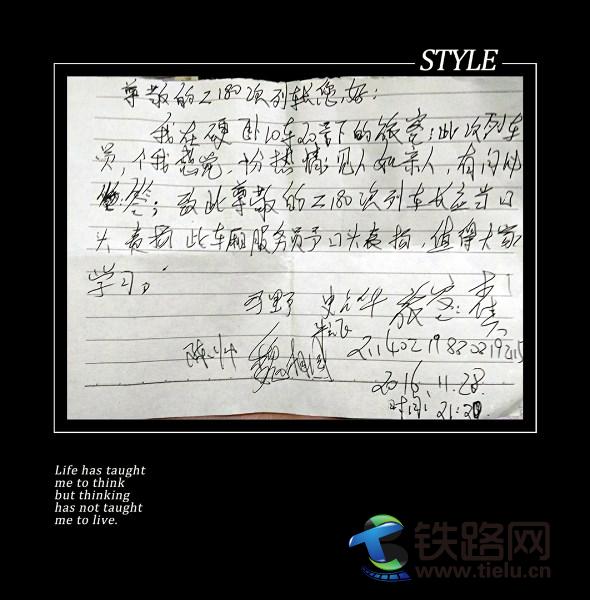 STYLE
尊敬的Z180次列车长您好:
我在硬卧10车20号下的旅客;此次列车
员,个我感觉,份热情见人如亲人,有问必
答;致此尊敬的Z180次列车长在首口
头表扬 此车厢服务员予口头表扬,值得大家
学习;
旅客:
2016.11.28.
时间:21:20
Life has taught
me to think
but thinking
has not taught
me to live.
铁路网
www.tielu.cn